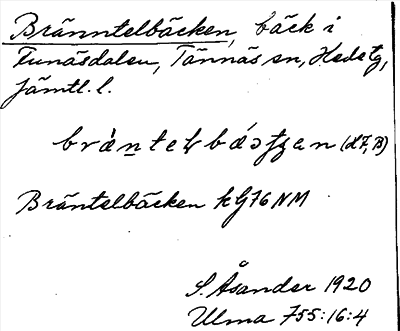 Bränntelbäcken, bäck i
Funäsdalen, Tännäs sn, Hede tg,
Jämtl. l.
(LF, B)
Bräntelbäcken kG76 NM
S. Åsander 1920
Ulma 755:16:4